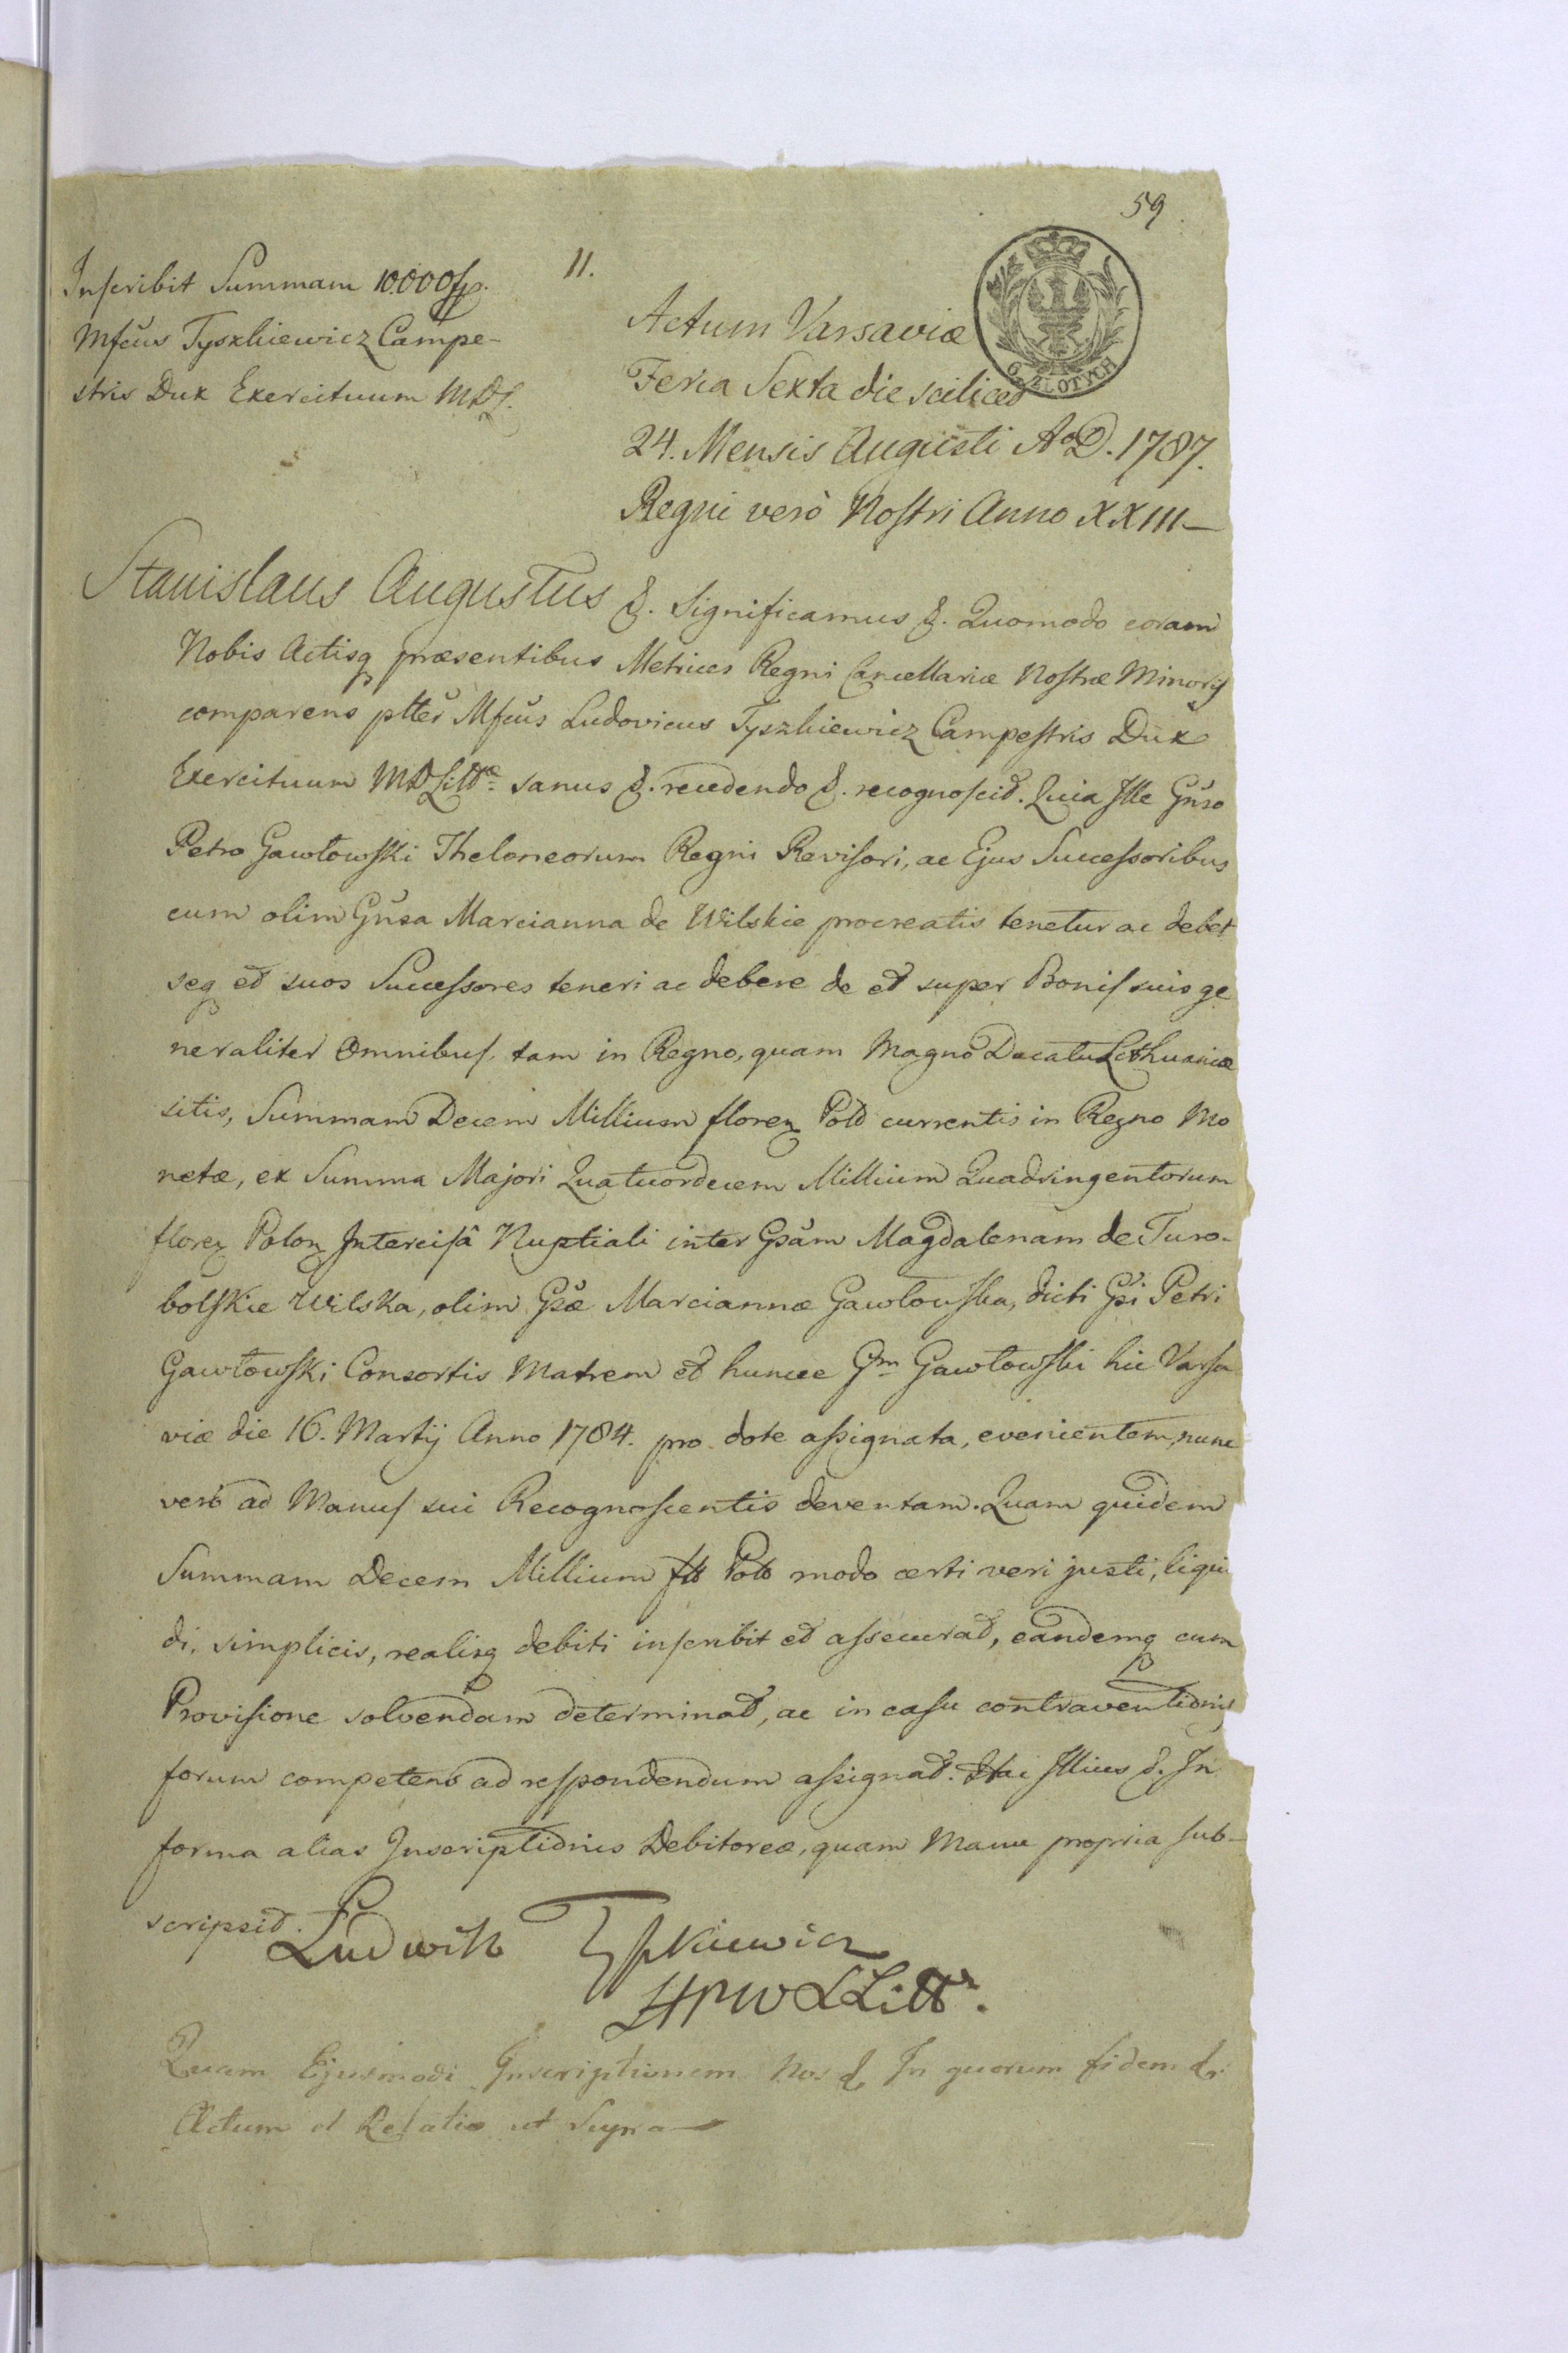 59
11.
Inscribit Summam 10.000 fp.
Mfcus Tyszkiewicz Campe-
stris Dux Exercituum MDL.
Actum Varsaviæ
Feria Sexta die scilicet
24. Mensis Augusti AoD. 1787.
Regni verò Nostri Anno XXIII—
6. ZŁOTYCH
Stanislaus Augustus &. Significamus &. Quomodo coram
Nobis Actisq præsentibus Metrices Regni Cancellariæ Nostræ Minoris
comparens ptter Mfcus Ludovicus Tyszkiewicz Campestris Dux
Exercituum MDLittæ sanus &. recedendo &. recognoscit. Quia Ille Gnso
Petro Gawłowski Theloneorum Regni Revisori, ac Ejus Successoribus
cum olim Gnsa Marcianna de Wilskie procreatis tenetur ac debet
seq et suos Successores teneri ac debere de et super Bonis suis ge
neraliter omnibus, tam in Regno, quam Magno Ducatu Lithuaniæ
sitis, Summam Decem Millium floren Pold currentis in Regno Mo
netæ, ex Summa Majori Quatuordecem Millium Quadringentorum
floren Polon Intercisâ Nuptiali inter Gsam Magdalenam de Turo-
bolskie Wilska, olim Gsæ Marciannæ Gawłowska, dicti Gsi Petri
Gawłowski Consortis Matrem et hunce Gm Gawłowski hic Varsa
viæ die 16. Martij Anno 1784. pro dote assignata, evenientem, nunc
verò ad Manus sui Recognoscentis deventam. Quam quidem
Summam Decem Millium fll Poll modo certi veri justi, liqui
di, simplicis, realisq debiti inscribit et assecurat, eandemq cum
Provisione solvendam determinat, ac in casu contraventionis
forum competens ad respondendum assignat. Illius &. In
forma alias Inscriptionis Debitoreæ, quam Manu propria sub-
scripsit.
Ludwik Tyszkiewicz
HPWLLitt.
Quam Ejusmodi Inscriptionem Nos & In quorum fidem &.
Actum et Relatio ut Supra—